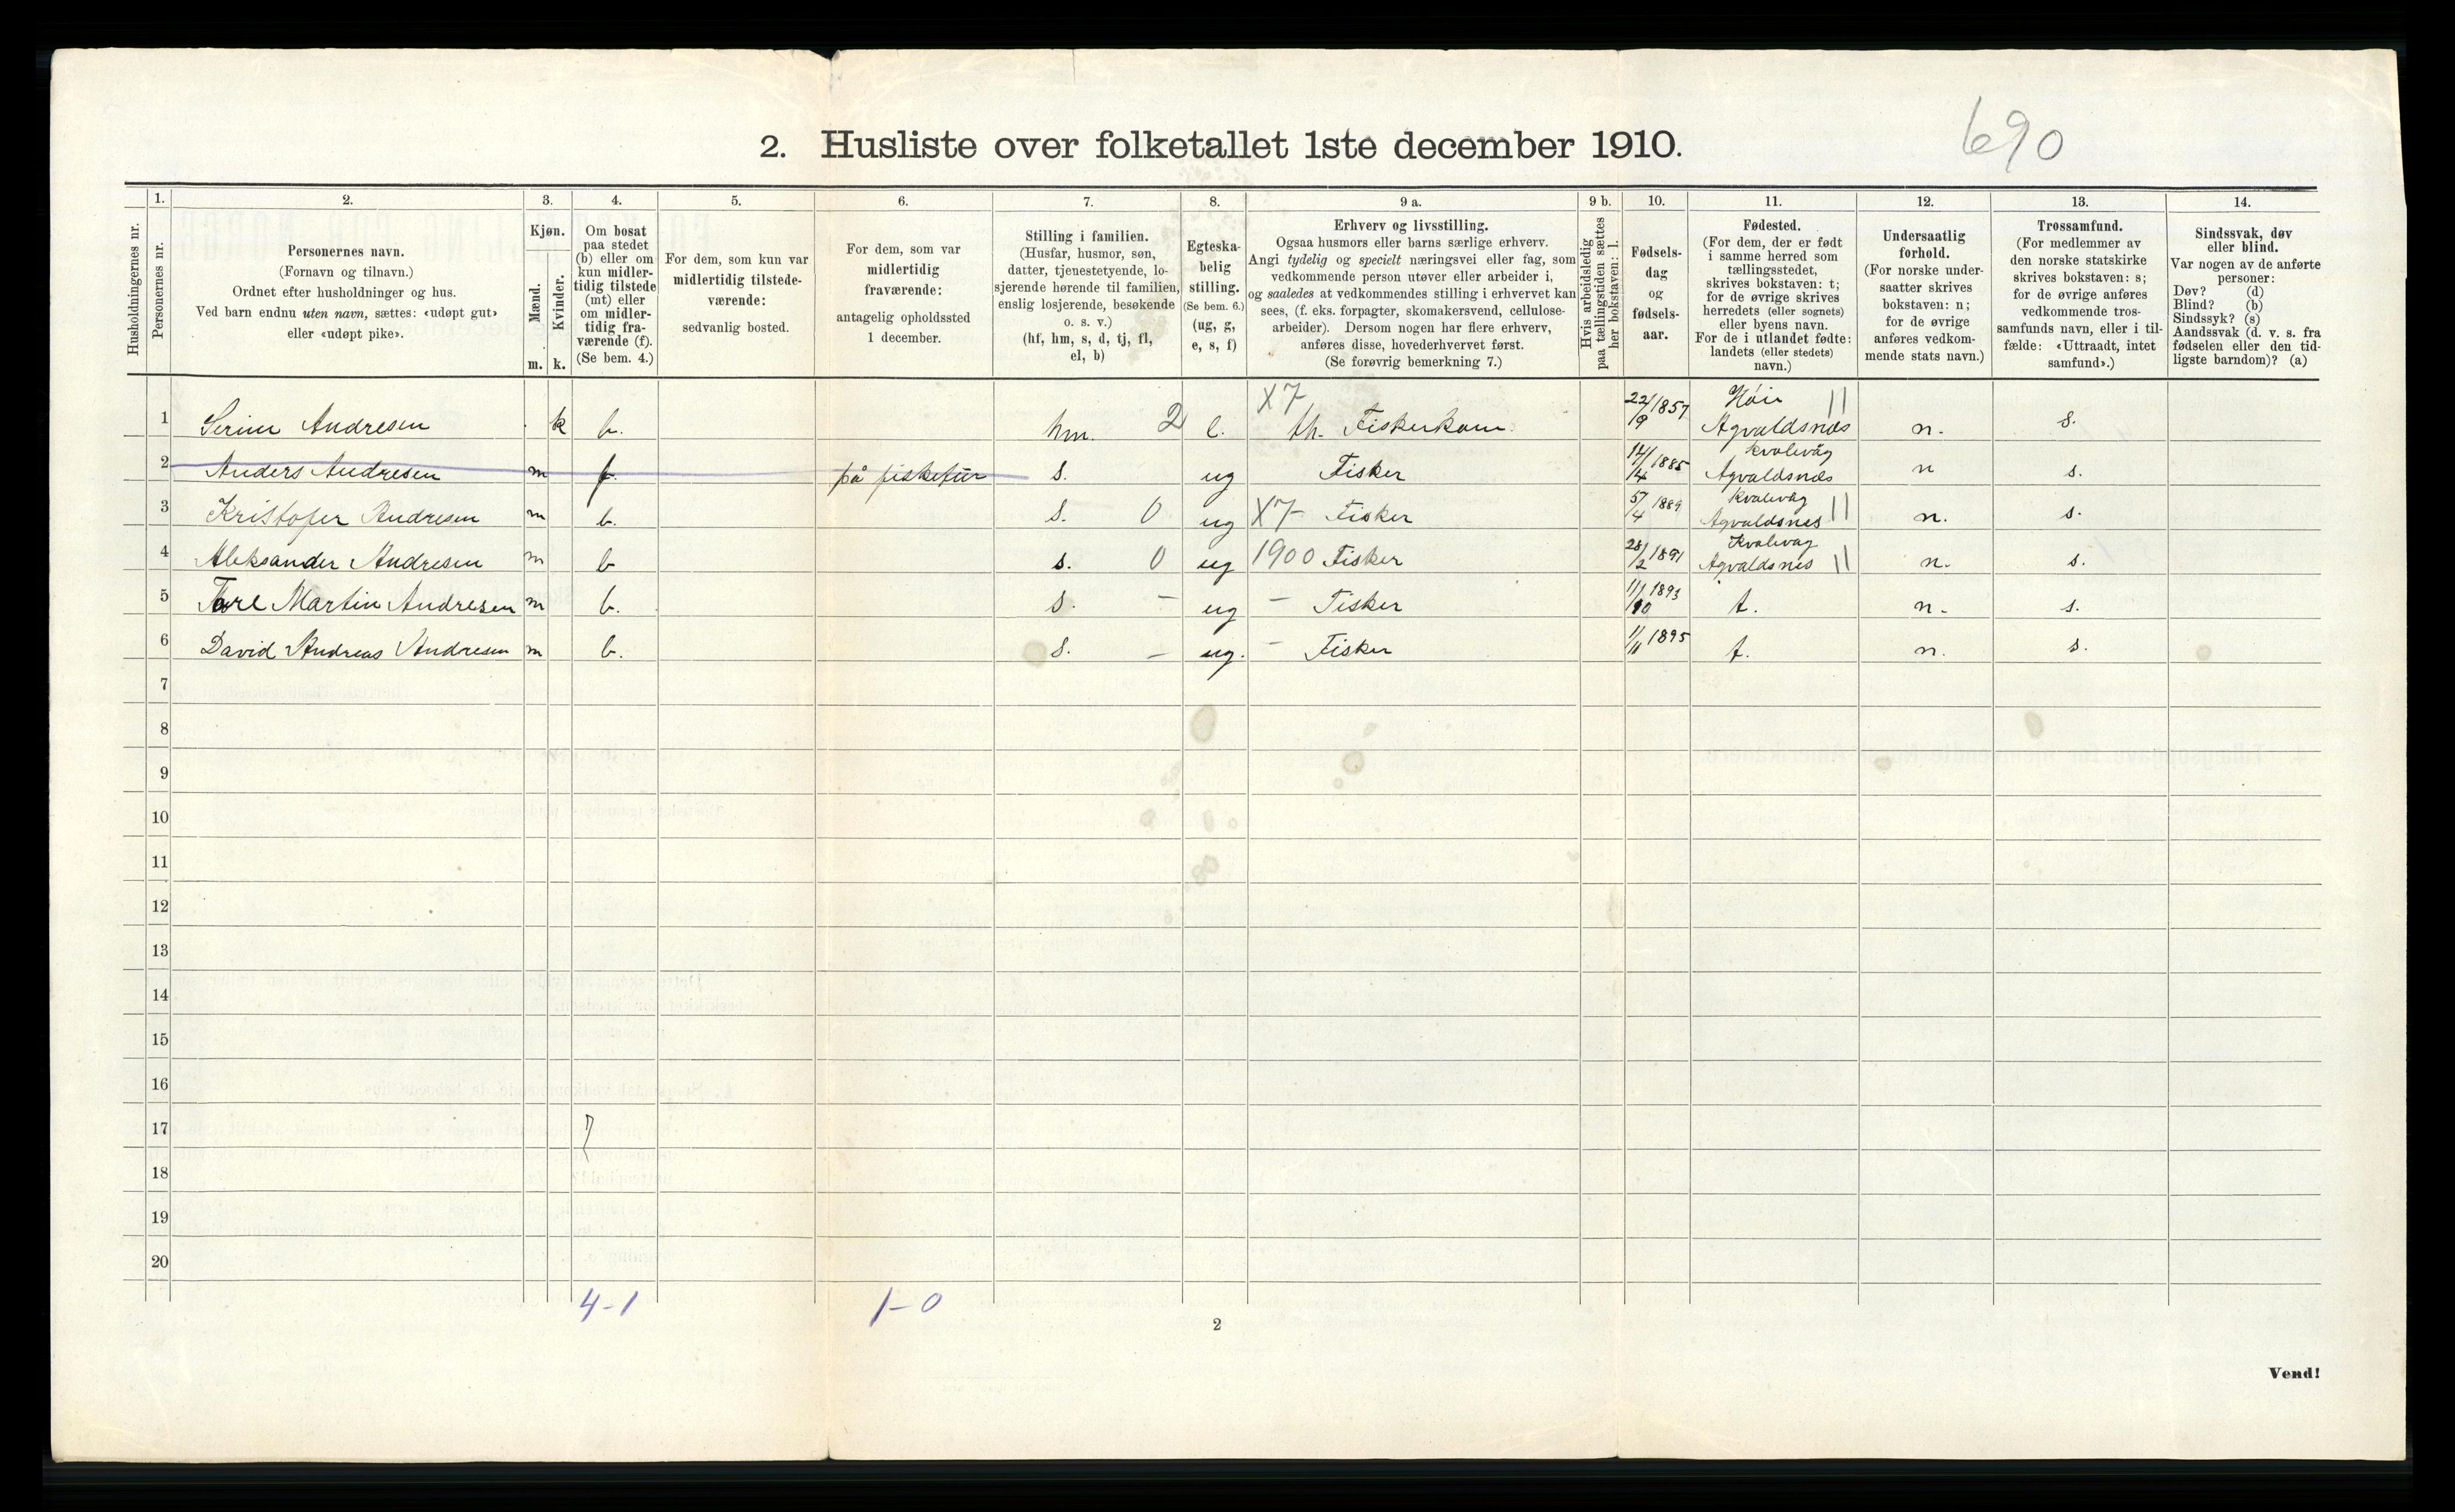 690
2. Husliste over folketallet 1ste december 1910.
Husholdningernes nr.
1.
Personernes nr.
2.
Personernes navn.
(Fornavn og tilnavn.)
Ordnet efter husholdninger og hus.
Ved barn endnu uten navn, sættes: «udøpt gut»
eller «udøpt pike».
3.
Kjøn.
Mænd.
Kvinder.
m. k.
4.
Om bosat
paa stedet
(b) eller om
kun midler-
tidig tilstede
(mt) eller
om midler-
tidig fra-
værende (f).
(Se bem. 4.)
5.
For dem, som kun var
midlertidig tilstede-
værende:
sedvanlig bosted.
6.
For dem, som var
midlertidig
fraværende:
antagelig opholdssted
1 december.
7.
Stilling i familien.
(Husfar, husmor, søn,
datter, tjenestetyende, lo-
sjerende hørende til familien,
enslig losjerende, besøkende
o. s. v.)
(hf, hm, s, d, tj, fl,
el, b)
8.
Egteska-
belig
stilling.
(Se bem. 6.)
(ug, g,
e, s, f)
9 a.
Erhverv og livsstilling.
Ogsaa husmors eller barns særlige erhverv.
Angi tydelig og specielt næringsvei eller fag, som
vedkommende person utøver eller arbeider i,
og saaledes at vedkommendes stilling i erhvervet kan
sees, (f. eks. forpagter, skomakersvend, cellulose-
arbeider). Dersom nogen har flere erhverv,
anføres disse, hovederhvervet først.
(Se forøvrig bemerkning 7.)
9 b.
Hvis arbeidsledig
paa tællingstiden sættes
her bokstaven: l.
10.
Fødsels-
dag
og
fødsels-
aar.
11.
Fødested.
(For dem, der er født
i samme herred som
tællingsstedet,
skrives bokstaven: t;
for de øvrige skrives
herredets (eller sognets)
eller byens navn.
For de i utlandet fødte:
landets (eller stedets)
navn.)
12.
Undersaatlig
forhold.
(For norske under-
saatter skrives
bokstaven: n;
for de øvrige
anføres vedkom-
mende stats navn.)
13.
Trossamfund.
(For medlemmer av
den norske statskirke
skrives bokstaven: s;
for de øvrige anføres
vedkommende tros-
samfunds navn, eller i til-
fælde: «Uttraadt, intet
samfund».)
14.
Sindssvak, døv
eller blind.
Var nogen av de anførte
personer:
Døv? (d)
Blind? (b)
Sindssyk? (s)
Aandssvak (d. v. s. fra
fødselen eller den tid-
ligste barndom)? (a)
1 Serine Andresen k b. hm. 2 e. X7 Fiskerkone 22/9 1857 Agvaldsnæs || n. s.
2 Anders Andresen m f. på fisketur s. ug Fisker 14/4 1885 Kvalevåg Agvaldsnæs n s.
3 Kristofer Andresen m b. s. 0 ug X7 - Fisker 5/4 1889 Kvalevåg Agvaldsnes || n. s.
4 Aleksander Andresen m b s. 0 ug 1900 Fisker 28/2 1891 Kvalevag Agvaldsnes || n. s.
5 Martin Andresen m b. s. - ug - Fisker 11/10 1893 t. n. s.
6 David Andreas Andresen m b. s. - ug. - Fisker 1/11 1895 t. n. s.
7
8
9
10
11
12
13
14
15
16
17
18
19
20
4-1 1-0
2
Vend!